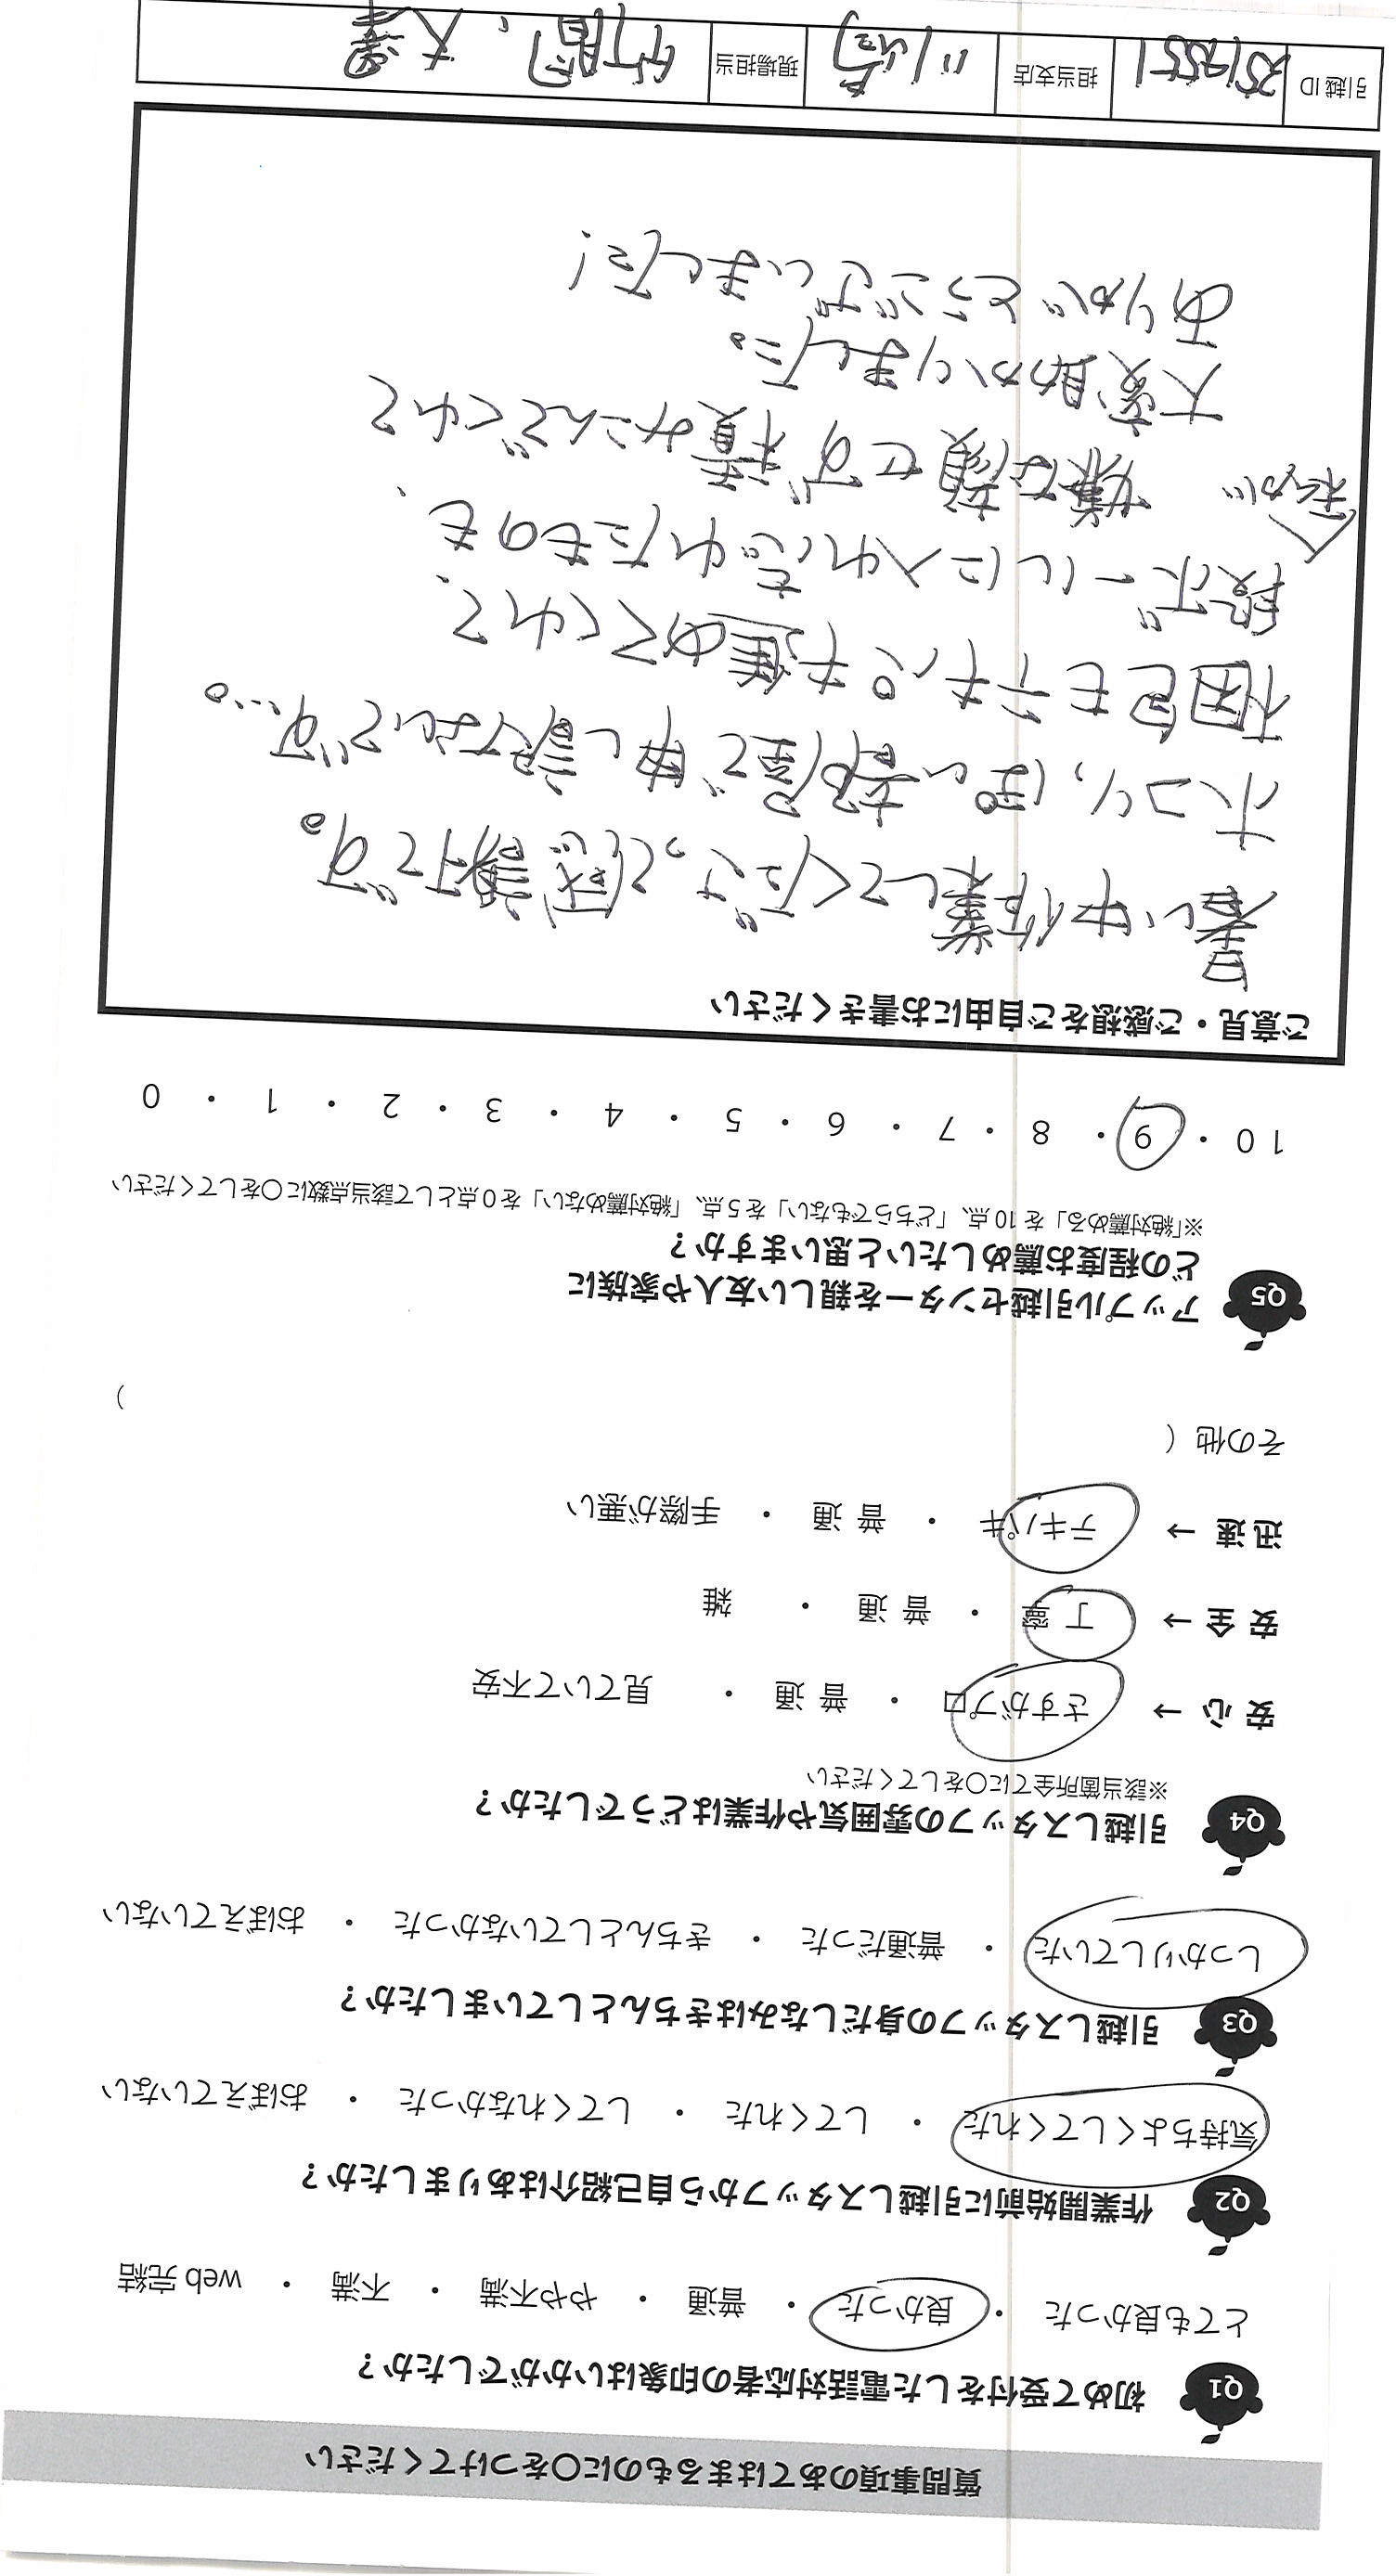 質問事項のあてはまるものに〇をつけてください
Q1 初めて受付をした電話対応者の印象はいかがでしたか？
とても良かった ・ 良かった ・ 普通 ・ やや不満 ・ 不満 ・ web 完結
Q2 作業開始前に引越しスタッフから自己紹介はありましたか？
気持ちよくしてくれた ・ してくれた ・ してくれなかった ・ おぼえていない
Q3 引越しスタッフの身だしなみはきちんとしていましたか？
しっかりしていた ・ 普通だった ・ きちんとしていなかった ・ おぼえていない
Q4 引越しスタッフの雰囲気や作業はどうでしたか？
※該当箇所全てに〇をしてください
安心 → さすがプロ ・ 普通 ・ 見ていて不安
安全 → 丁寧 ・ 普通 ・ 雑
迅速 → テキパキ ・ 普通 ・ 手際が悪い
その他（ ）
Q5 アップル引越センターを親しい友人や家族に
どの程度お薦めしたいと思いますか？
※「絶対薦める」を 10 点、「どちらでもない」を 5 点、「絶対薦めない」を 0 点として該当点数に〇をしてください
10 ・ 9 ・ 8 ・ 7 ・ 6 ・ 5 ・ 4 ・ 3 ・ 2 ・ 1 ・ 0
ご意見・ご感想をご自由にお書きください
暑い中作業してくださって感謝です。
ホコリっぽい部屋で申し訳ないです…。
梱包もテキパキ進めてくれて、
段ボールに入れ忘れたものも、
私が
嫌な顔せず積みこんでくれて
大変助かりました。
ありがとうございました!
引越 ID 担当支店 現場担当